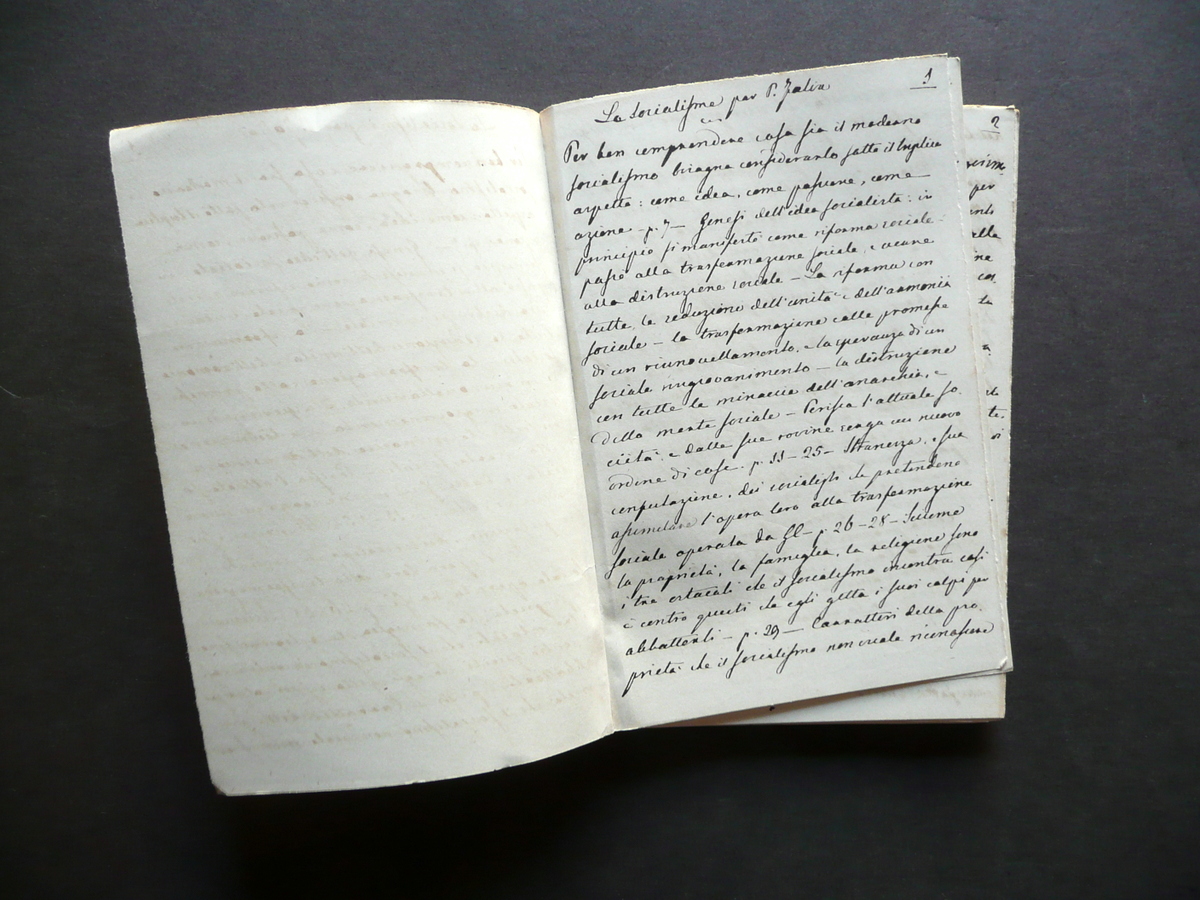 1
Le Socialisme par P. Felix
Per ben comprendere cosa sia il moderno
socialismo bisogna considerarlo sotto il triplice
aspetto: come idea, come passione, come
azione - p. 7 - Genesi dell'idea socialista: in
principio si manifestò come riforma sociale:
passò alla trasformazione sociale, e
alla distruzione sociale - La riforma con
tutte le seduzioni dell'unità e dell'armonia
sociale - la trasformazione colle promesse
di un rinnovellamento, e la speranza di un
sociale ringiovanimento - la distruzione
con tutte le minaccie dell'anarchia, e
della morte sociale - Perisca l'attuale so-
cietà e dalle sue rovine venga un nuovo
ordine di cose. p. 11 - 25 - Stranezza, e sua
confutazione, dei socialisti che pretendono
assimilare l'opera loro alla trasformazione
sociale operata da - p. 26 - 28 - Siccome
la proprietà, la famiglia, la religione sono
i tre ostacoli che il socialismo incontra così
è contro questi che egli getta i suoi colpi per
abbatterli - p. 29 - Caratteri della pro-
prietà che il socialismo non vuole riconoscere
2
per